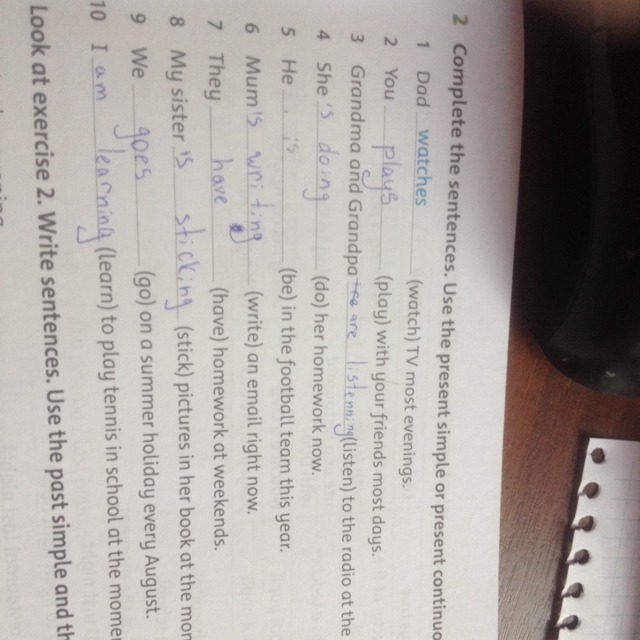 2 Complete the sentences. Use the present simple or present continuo
1 Dad watches (watch) TV most evenings.
2 You plays (play) with your friends most days.
3 Grandma and Grandpa are listenning (listen) to the radio at the
4 She 's doing (do) her homework now.
5 He is (be) in the football team this year.
6 Mum 's writing (write) an email right now.
7 They have (have) homework at weekends.
8 My sister is sticking (stick) pictures in her book at the mom
9 We goes (go) on a summer holiday every August.
10 I am learning (learn) to play tennis in school at the momen
Look at exercise 2. Write sentences. Use the past simple and th